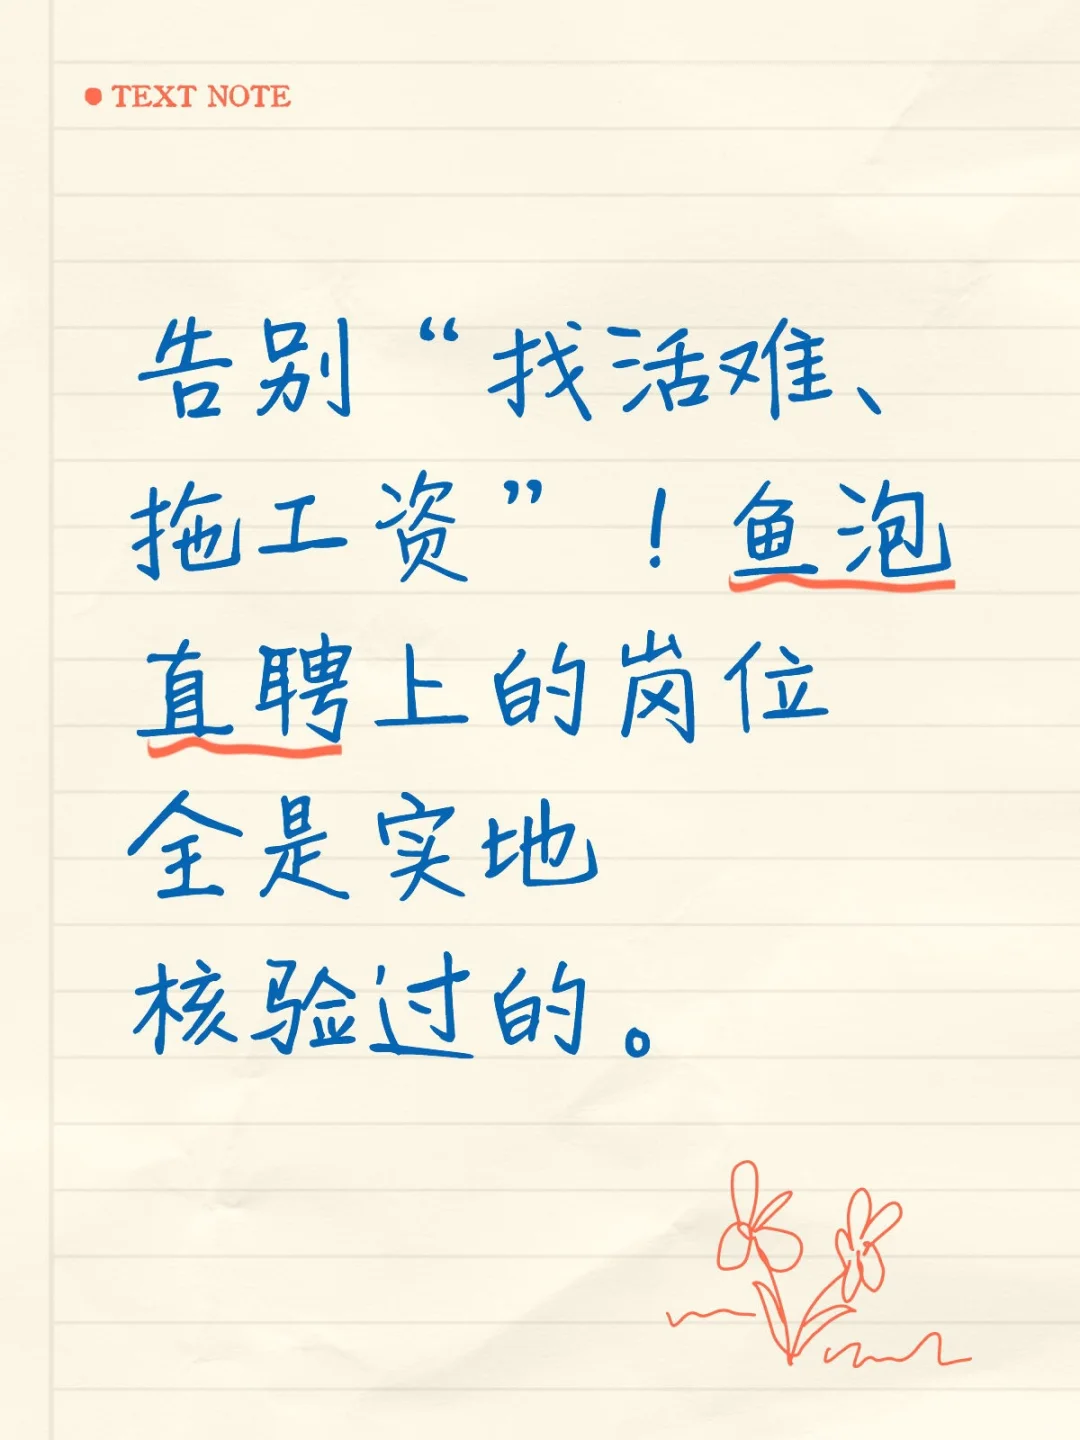 TEXT NOTE
告别“找活难、
拖工资”！鱼泡
直聘上的岗位
全是实地
核验过的。